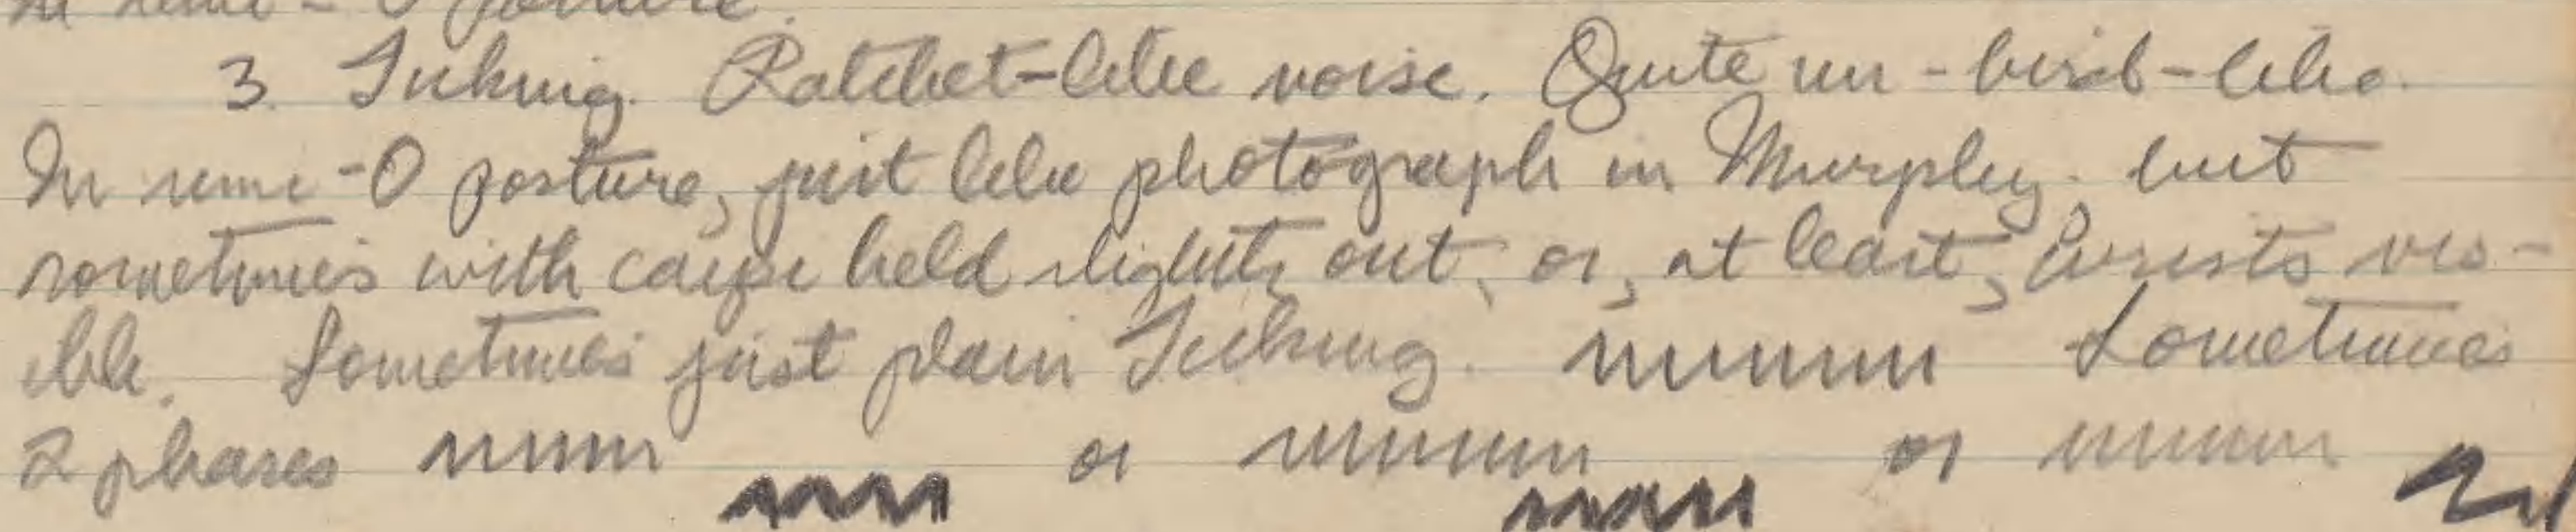 posture.
3. Ticking. Ratchet-like noise. Quite un-bird-like.
In semi-O posture, just like photograph in Murphy, but
sometimes with carpi held slightly out, or, at least, wrists vis-
ible. Sometimes just plain Ticking. Sometimes
2 phases or or